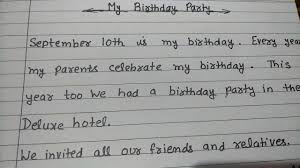 My Birthday Party
September 10th is my birthday. Every year
my parents celebrate my birthday. This
year too we had a birthday party in the
Deluxe hotel.
We invited all our friends and relatives.